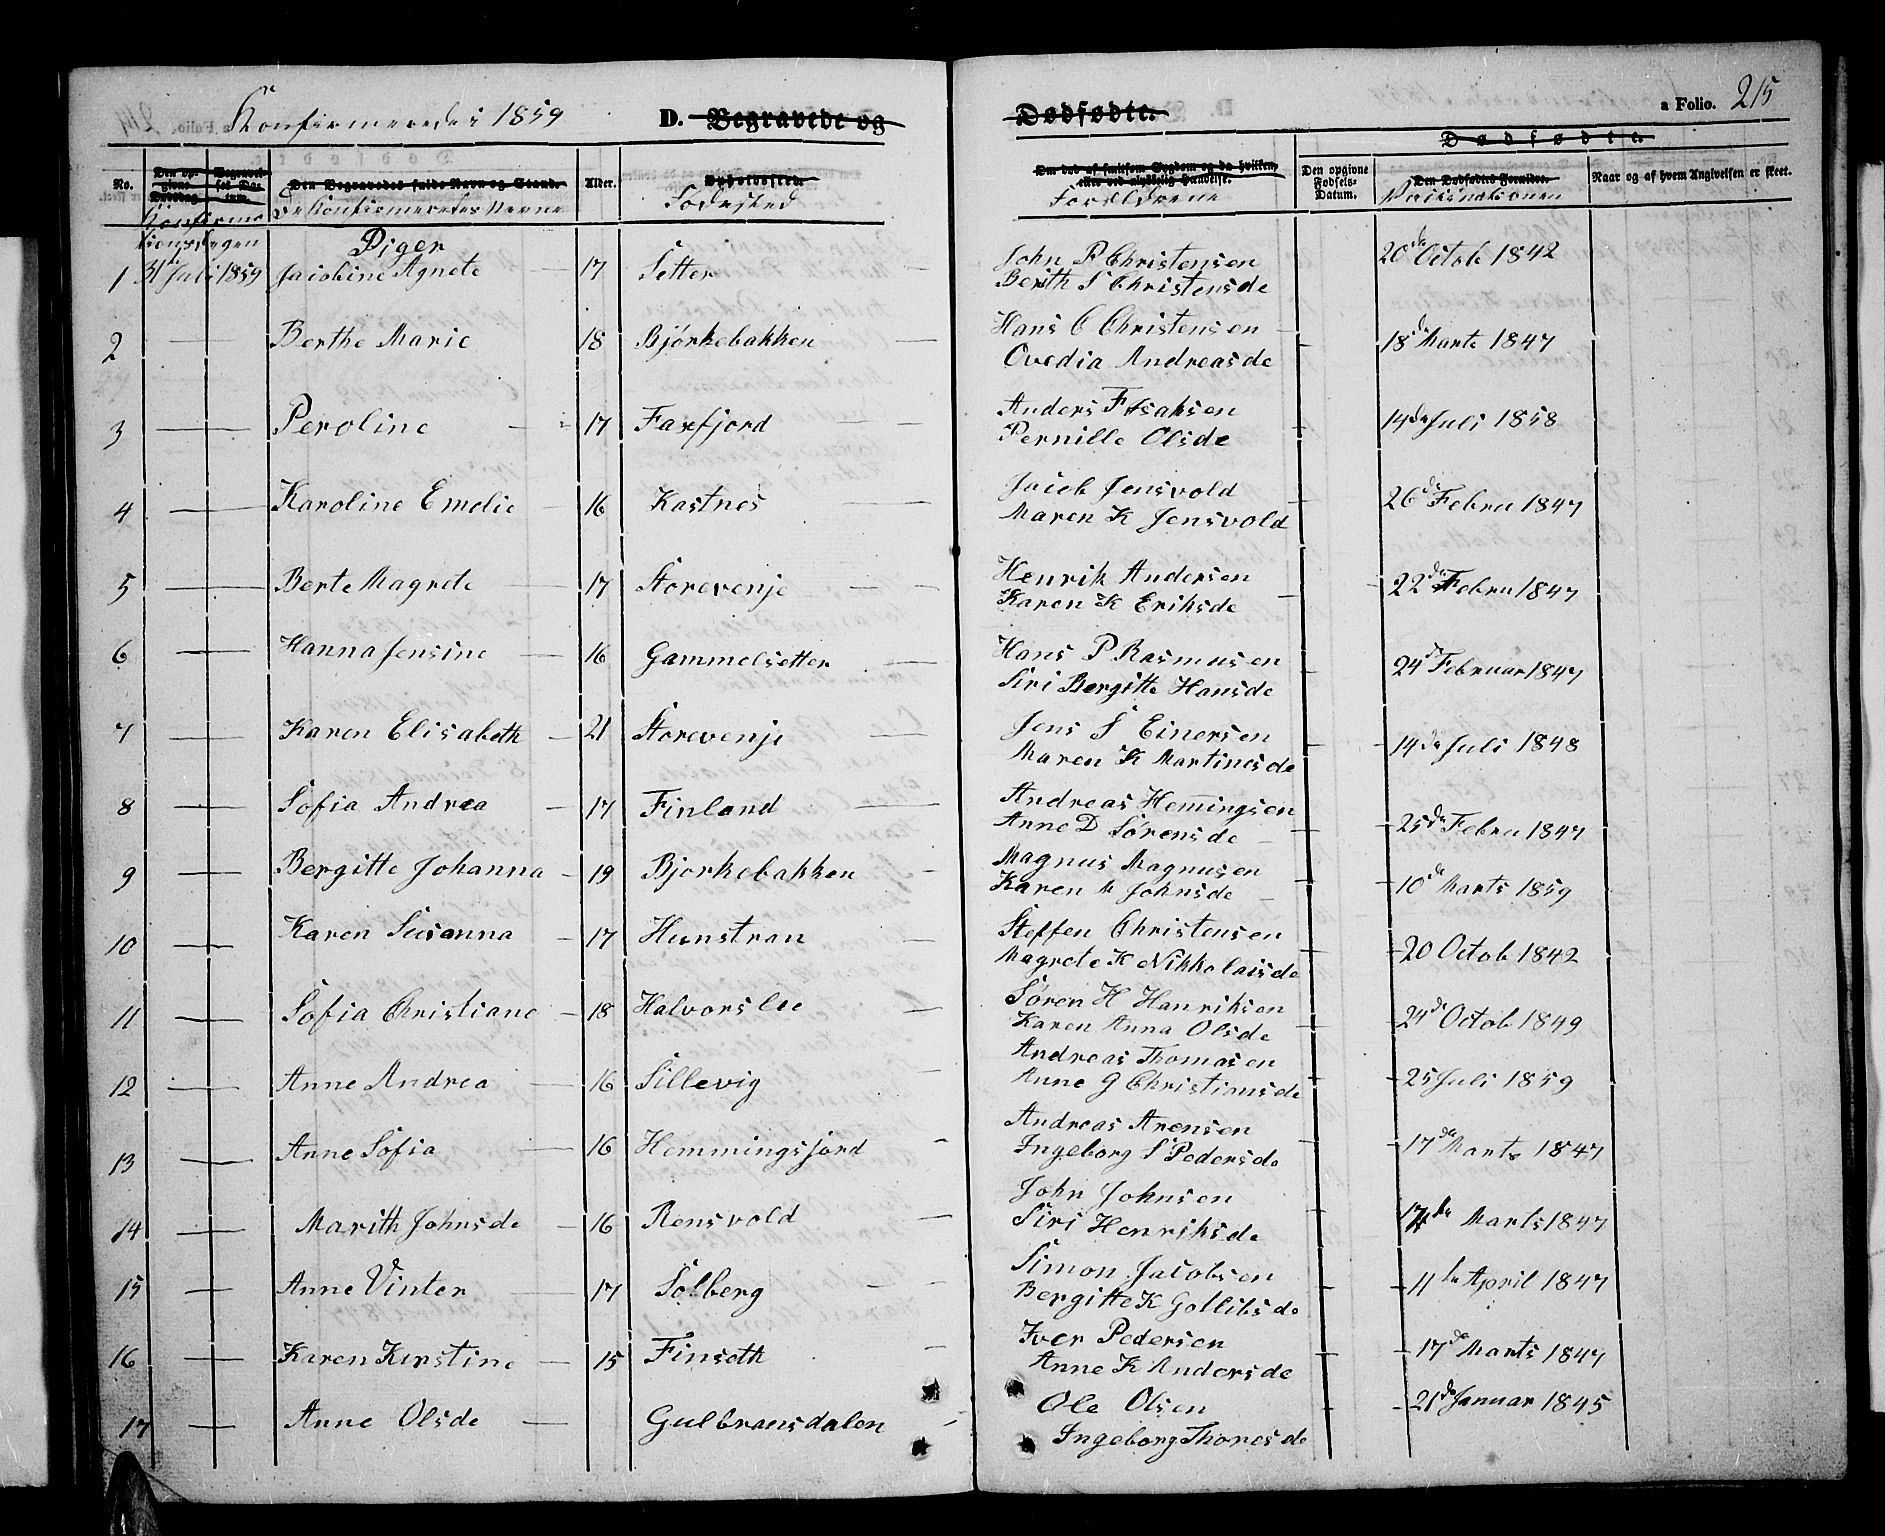 Konfirmerede i 1859 D. Begravede og Dødfødte. a Folio. 215
Dødfødte.
No.
Den opgivne Dødsdag
Begravelses Datum.
Den Begravedes fulde Navn og Stand.
Alder.
Opholdssted.
Om død af smitsom Sygdom og da hvilken, eller ved ulykkelig Hændelse.
Den opgivne Fødsels-Datum.
Den Dødfødtes Forældre.
Naar og af hvem Angivelsen er skeet.
Konfirmationsdagen
De Konfirmeredes Navne
Fødested
Forældrene
Vaksinationen
Piger
1 31te Juli 1859 Jacobine Agnete 17 Setter John P Christensen 20de Octob 1842
Berith S Christensde
2 Berthe Marie 18 Bjørkebakken Hans C Christensen 18de Marts 1847
Ovedia Andreasde
3 Peroline 17 Faxfjord Anders F Isaksen 14de Juli 1858
Pernille Olsde
4 Karoline Emelie 16 Kastnes Jacob Jensvold 26de Febru 1847
Maren K Jensvold
5 Berte Magrete 17 Storevenje Henrik Andersen 22de Febru 1847
Karen K Eriksde
6 Hanna Jensine 16 Gammelsetter Hans P Rasmusen 24de Februar 1847
Siri Bergitte Hansde
7 Karen Elisabeth 21 Storevenje Jens S Einersen 14de Juli 1848
Maren K Martinesde
8 Sofia Andrea 17 Finland Andreas Hemingsen 25de Febru 1847
Anne D Sørensde
9 Bergitte Johanna 19 Bjørkebakken Magnus Magnusen 10de Marts 1859
Karen M Johnsde
10 Karen Susanna 17 Hunstran Steffen Christensen 20 Octob 1842
Magrete K Nikkolaisde
11 Sofia Christiane 18 Halvorslee Søren H Hanriksen 24de Octob 1849
Karen Anna Olsde
12 Anne Andrea 16 Sillevig Andreas Thomasen 25 Juli 1859
Anne G Christiansde
13 Anne Sofia 16 Hemmingsjord Andreas Arensen 17de Marts 1847
Ingeborg S Pedersde
14 Marith Johnsde 16 Rensvold John Johnsen 17de Marts 1847
Siri Henriksde
15 Anne Vinter 17 Solberg Simon Jacobsen 11te April 1847
Bergitte K Gollibsde
16 Karen Kirstine 15 Finseth Iver Pedersen 17de Marts 1847
Anne K Andersde
17 Anne Olsde Gulbransdalen Ole Olsen 21de Januar 1845
Ingeborg Thoresde